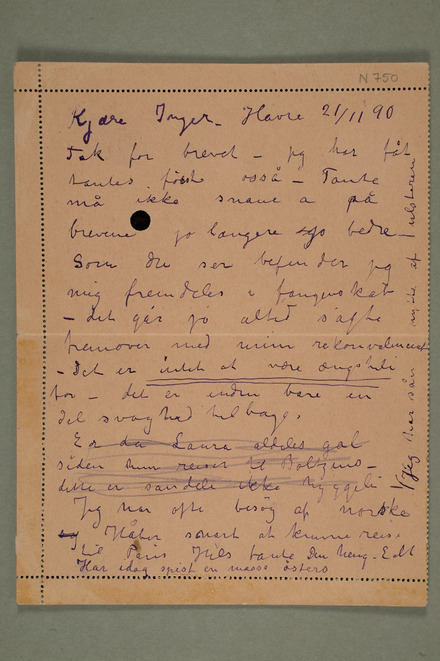 N 750
Kjære Inger - Havre 21/11 90
Tak for brevet - jeg har fåt
tantes første osså - Tante
må ikke snave a på
brevene jo længere jo bedre -
Som du ser befinder jeg
mig fremdeles i fangenskab
- det går jo altid sagte
fremover med min rekonvalescent
- Det er intet at være ængstelig
for - det er endnu bare en
del svaghed tilbage.
Er da Laura aldeles gal
siden hun reiser til Boltzens -
dette er sandelig ikke hyggeli
Jeg har ofte besøg af norske
Håber snart at kunne reise
til Paris Hils tante Din heng. E dt
Har idag spist en masse østers
Jeg har sån nyde af ulsteren